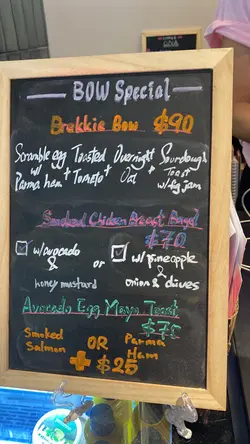 BOW Special
Brekkie Bow $90
Scramble egg Toasted Overnight Sourdough
w/ + Tomato + Oat + Toast
Parma ham w/ fig jam
Smoked Chicken Breast Bagel
$70
w/avocado or w/pineapple
& &
honey mustard onion & chives
Avocado Egg Mayo Toast
$75
Smoked OR Parma
Salmon Ham
+ $25